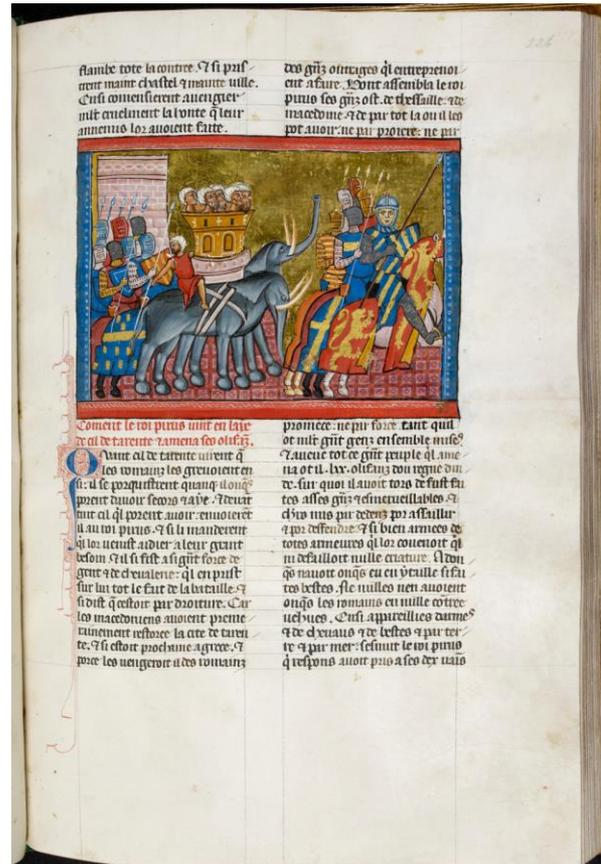 flambe tote la contree. ⁊ si pris-
trent maint chastel ⁊ mainte uille.
Ensi comensierent auengier
mlt cruelment la honte q̃ leur
annemis lor auoient faite.
Coment le roi pirus uint en laye
de cil de tarente ⁊ amena ses olifanz.
Quant cil de tarente uirent q̃
les romainz les greuoient en
si: il se porquistrent quanq̃ il onq̃s
porent dauoir secors ⁊ aye. ⁊ deuant
tuit cil q̃l porent auoir: enuoierent
il au roi pirus. ⁊ si li manderent
q̃l lor uenist aidier a leur grant
besoin ⁊ il si fist a si grãt force de
gent ⁊ de cheualerie: q̃l en prist
sur lui tot le fait de la bataille. ⁊
si dist q̃ cestoit par droiture. Car
les macedoniens auoient premie
rainement restoree la cite de taren
te. ⁊ si estoit prochaine a grece. ⁊
porce les uengeroit il des romainz
des grãz outrages q̃l entreprenoi
ent a faire. Dont assembla le roi
pirus ses grãz ost. de thessaille. ⁊ de
macedoine. ⁊ de par tot la ou il les
pot auoir. ne par proiere: ne par
promece: ne par force. tant quil
ot mlt grãt genz en semble mise.
⁊ aueuc tot ce grãt peuple q̃l ame
na ot il .lxx. olifanz dou regne din
de. sur quoi il auoit tors de fust fai
tes asses grãz ⁊ esmerueillables. ⁊
chrs mis par dedenz por assaillir
⁊ por deffendre. ⁊ si bien armees de
totes armeures q̃l lor couenoit q̃l
ni defailloit nulle creature. Adon
q̃s nauoit onq̃s eu en ytaille si fai
tes bestes. Ne nulles nen auoient
onq̃s les romains en nulle cõtree
uehues. Ensi appareillies darmes
⁊ de cheuaus ⁊ de bestes ⁊ par ter
re ⁊ par mer: sesmut le roi pirus
q̃ respons auoit pris a ses dex uains